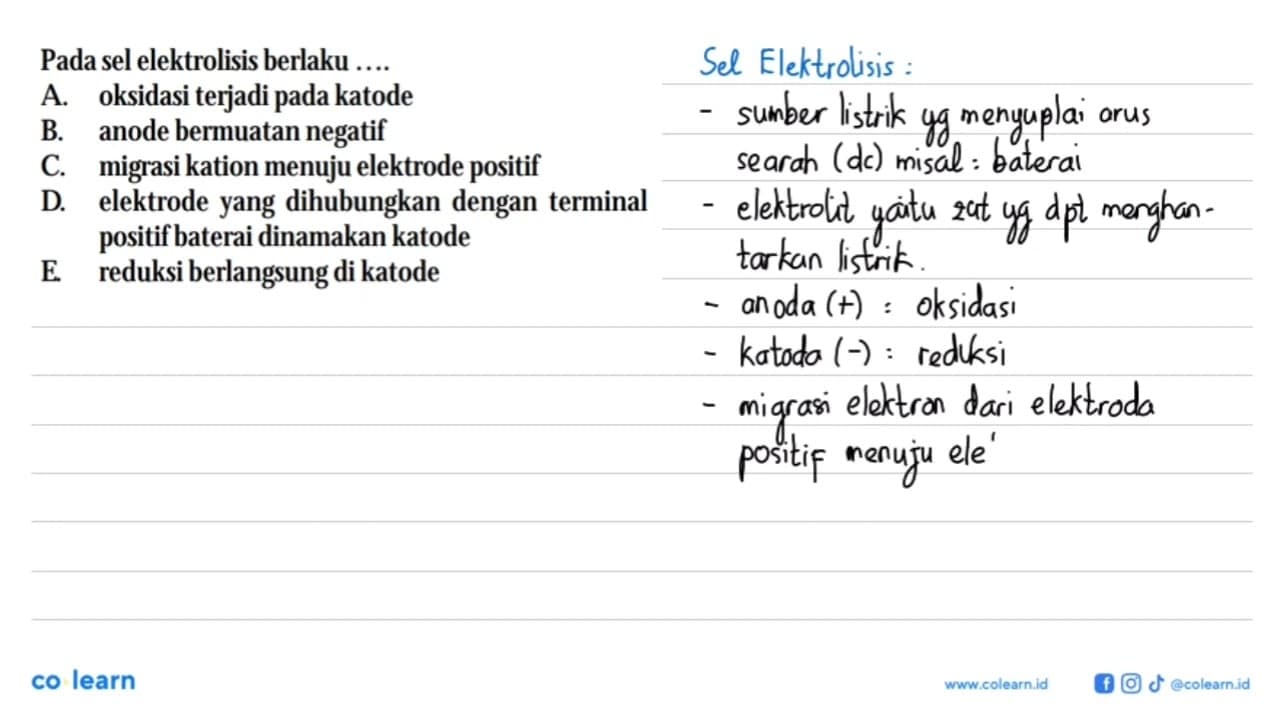 Pada sel elektrolisis berlaku ....
A. oksidasi terjadi pada katode
B. anode bermuatan negatif
C. migrasi kation menuju elektrode positif
D. elektrode yang dihubungkan dengan terminal
positif baterai dinamakan katode
E. reduksi berlangsung di katode
Sel Elektrolisis :
- sumber listrik yg menyuplai arus
searah (dc) misal : baterai
- elektrolit yaitu zat yg dpt menghan-
tarkan listrik.
- anoda (+) : oksidasi
- katoda (-) : reduksi
- migrasi elektron dari elektroda
positif menuju ele'
co learn
www.colearn.id
@colearn.id